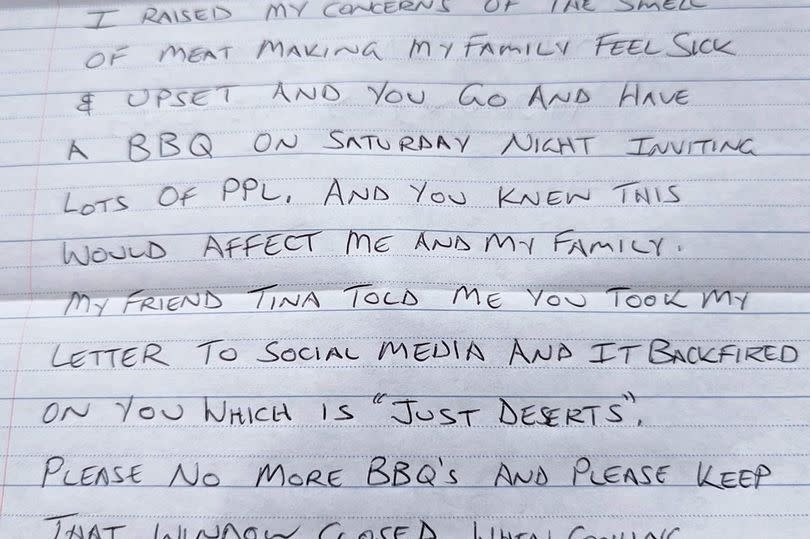 I RAISED MY CONCERNS OF THE SMELL
OF MEAT MAKING MY FAMILY FEEL SICK
& UPSET AND YOU GO AND HAVE
A BBQ ON SATURDAY NIGHT INVITING
LOTS OF PPL. AND YOU KNEW THIS
WOULD AFFECT ME AND MY FAMILY.
MY FRIEND TINA TOLD ME YOU TOOK MY
LETTER TO SOCIAL MEDIA AND IT BACKFIRED
ON YOU WHICH IS "JUST DESERTS".
PLEASE NO MORE BBQ'S AND PLEASE KEEP
THAT WINDOW CLOSED WHEN COOKING